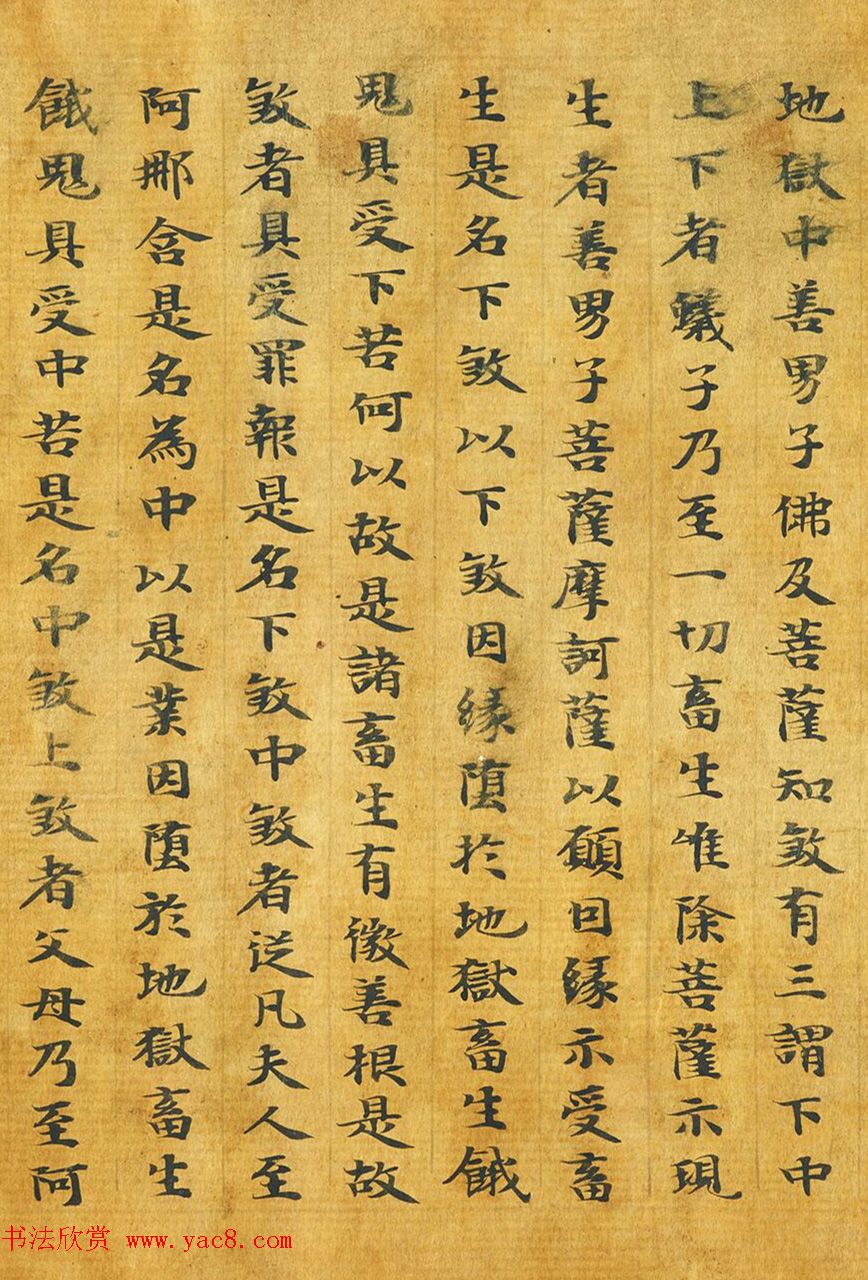 地獄中善男子佛及菩薩知煞有三謂下中
上下者蟻子乃至一切畜生唯除菩薩示現
生者善男子菩薩摩訶薩以願因緣示受畜
生是名下煞以下煞因緣墮於地獄畜生餓
鬼具受下苦何以故是諸畜生有微善根是故
煞者具受罪報是名下煞中煞者從凡夫人至
阿那含是名為中以是業因墮於地獄畜生
餓鬼具受中苦是名中煞上煞者父母乃至阿
书法欣赏 www.yac8.com